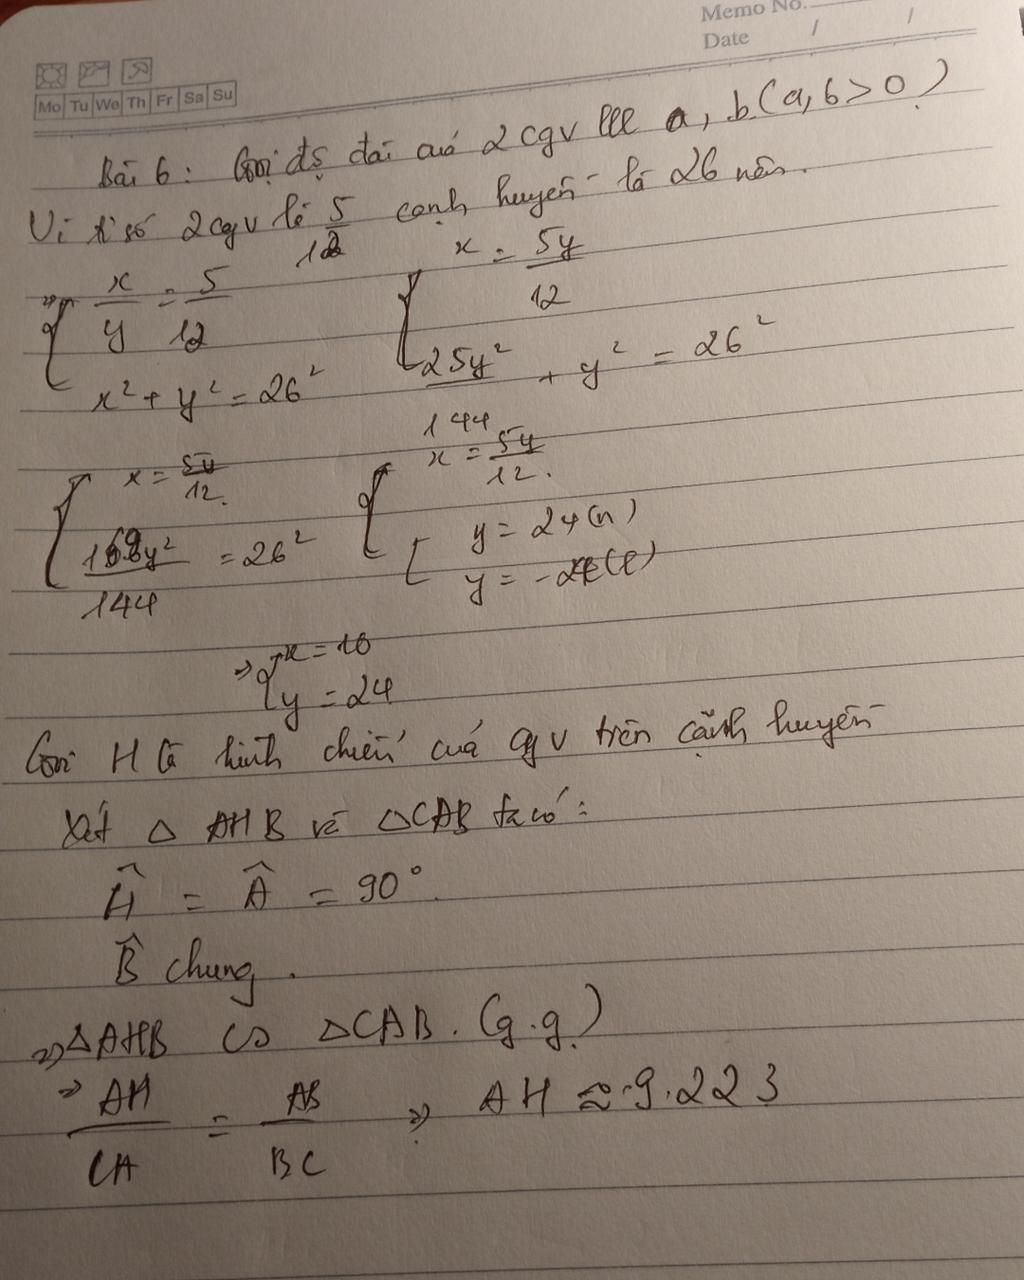 Memo No.
Date / /
Mo Tu We Th Fr Sa Su
Bài 6: Gọi độ dài của 2 cgv lll a, b (a, b > 0)
Vì tỉ số 2 cgv là 5/12 cạnh huyền là 26 nên.
=> { x/y = 5/12 { x = 5y/12
x² + y² = 26² 25y²/144 + y² = 26²
{ x = 5y/12. { x = 5y/12.
169y²/144 = 26² [ y = 24 (n)
y = -24 (l)
=> { x = 10
y = 24
Gọi H là hình chiếu của cgv trên cạnh huyền
Xét △ AHB và △CAB ta có:
Ĥ = Â = 90°.
B̂ chung.
=> △AHB ∽ △CAB. (g.g)
=> AH/CA = AB/BC => AH ≈ 9.223